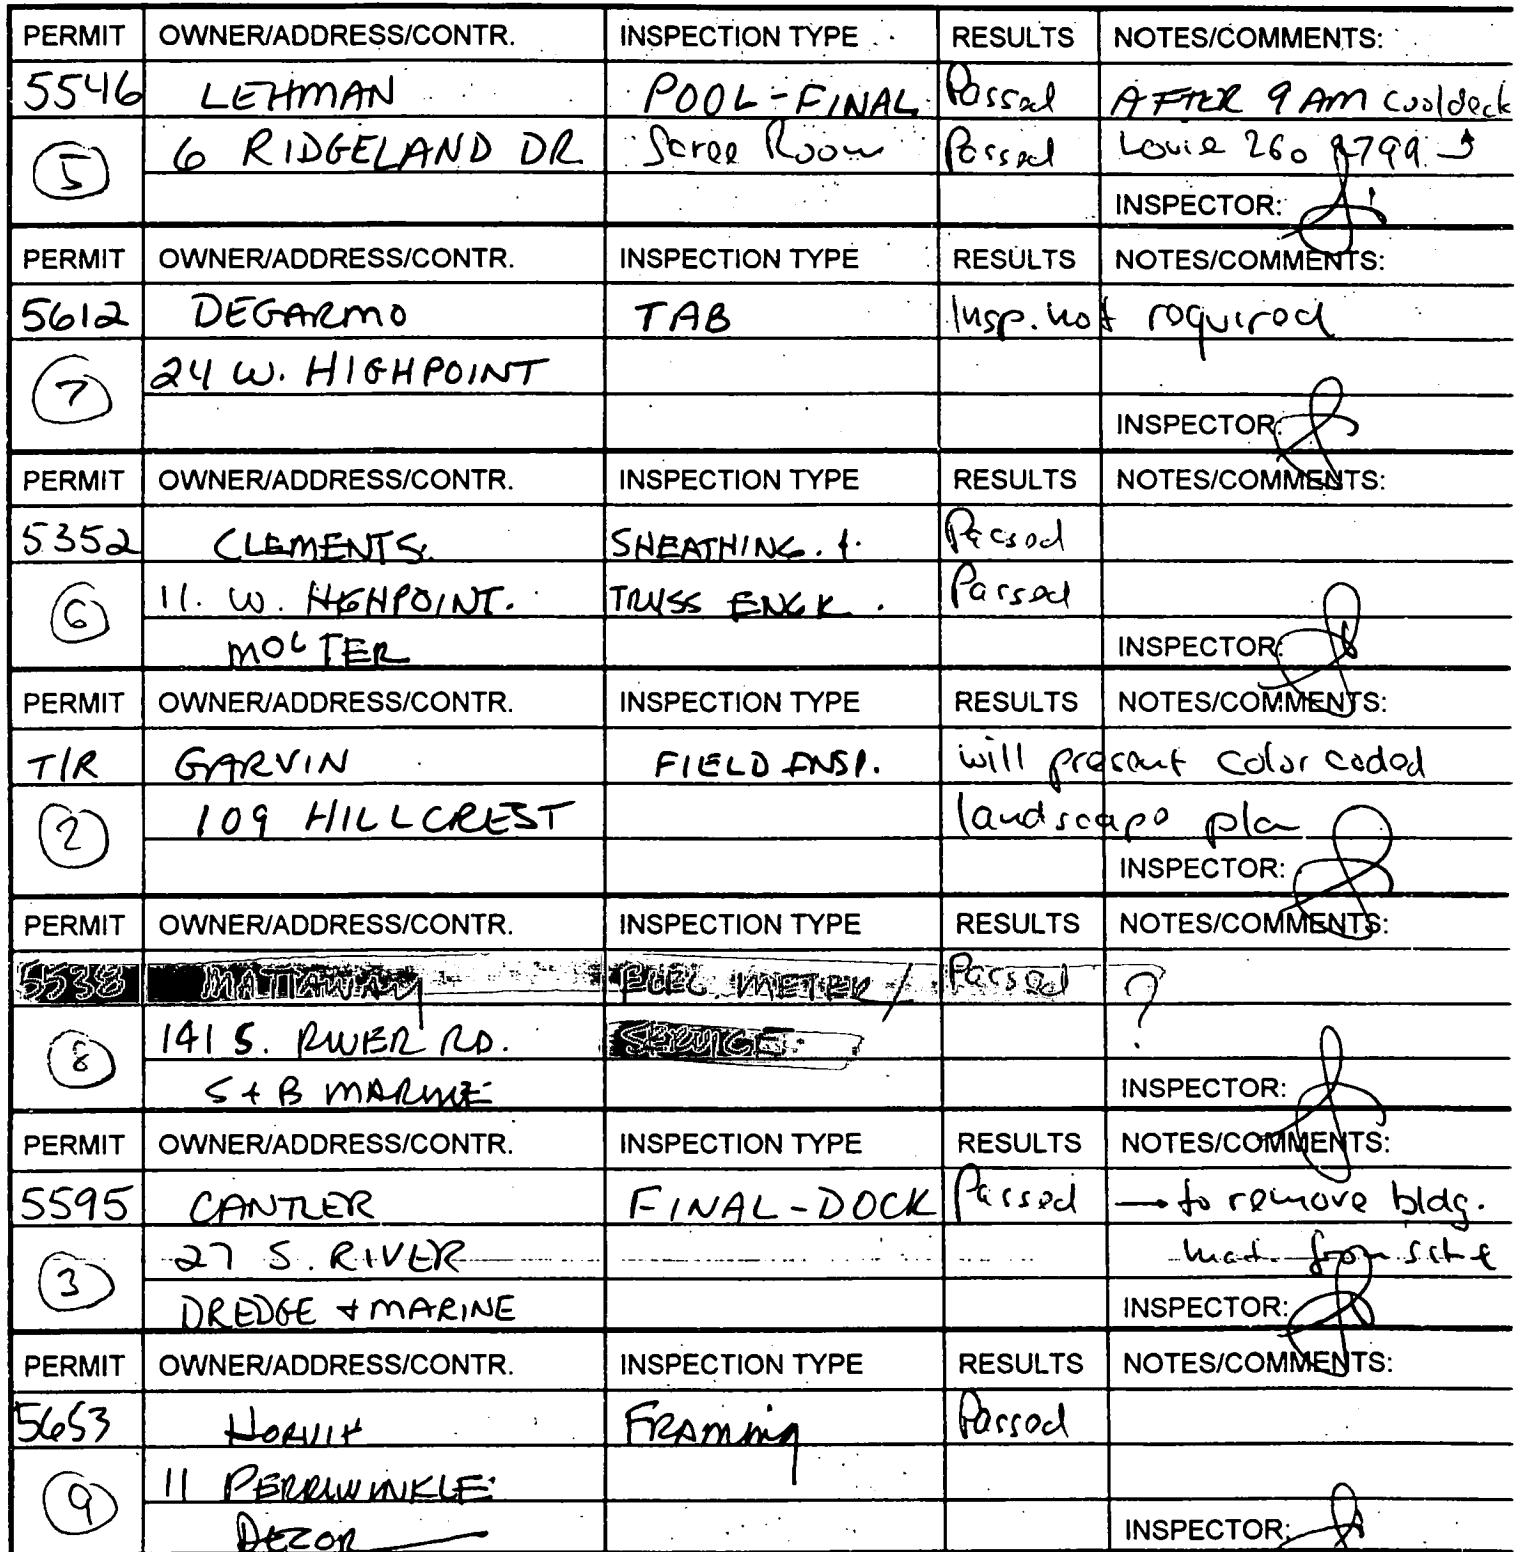 PERMIT OWNER/ADDRESS/CONTR. INSPECTION TYPE RESULTS NOTES/COMMENTS:
5546 LEHMAN POOL-FINAL Passed AFTER 9 AM cooldeck
5 6 RIDGELAND DR Scree Room Passed Louie 260 9799
INSPECTOR:
PERMIT OWNER/ADDRESS/CONTR. INSPECTION TYPE RESULTS NOTES/COMMENTS:
5612 DEGARMO TAB Insp. not required
7 24 W. HIGHPOINT
INSPECTOR:
PERMIT OWNER/ADDRESS/CONTR. INSPECTION TYPE RESULTS NOTES/COMMENTS:
5352 CLEMENTS SHEATHING & Passed
6 11 W. HIGHPOINT TRUSS ENGR. Passed
MOLTER INSPECTOR:
PERMIT OWNER/ADDRESS/CONTR. INSPECTION TYPE RESULTS NOTES/COMMENTS:
T/R GARVIN FIELD INSP. will present color coded
2 109 HILLCREST landscape plan
INSPECTOR:
PERMIT OWNER/ADDRESS/CONTR. INSPECTION TYPE RESULTS NOTES/COMMENTS:
5538 MATTAWAY ELEC. METER/ Passed ?
8 141 S. RIVER RD. SERVICE
S + B MARINE INSPECTOR:
PERMIT OWNER/ADDRESS/CONTR. INSPECTION TYPE RESULTS NOTES/COMMENTS:
5595 CANTLER FINAL-DOCK Passed → to remove bldg.
3 27 S. RIVER mat. from site
DREDGE + MARINE INSPECTOR:
PERMIT OWNER/ADDRESS/CONTR. INSPECTION TYPE RESULTS NOTES/COMMENTS:
5653 HORVIT FRAMING Passed
9 11 PERRIWINKLE
DEZOR INSPECTOR: